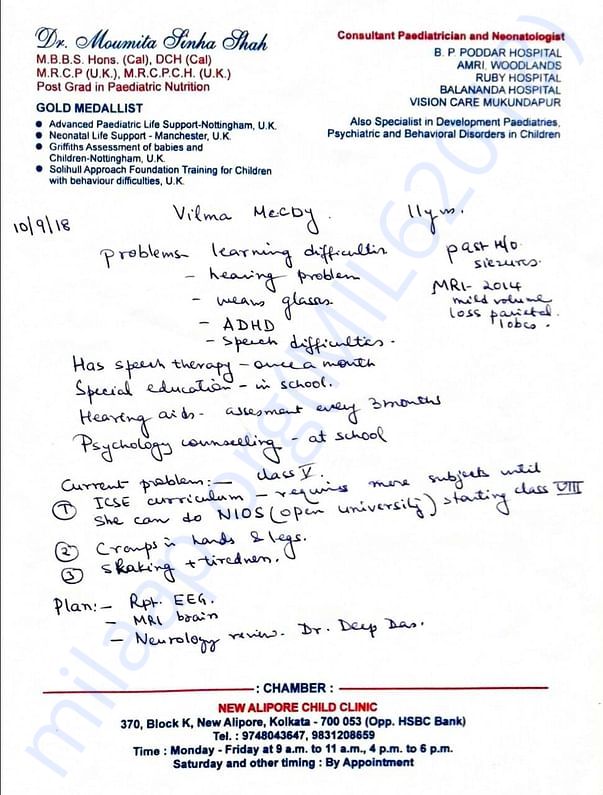 Dr. Moumita Sinha Shah
M.B.B.S. Hons. (Cal), DCH (Cal)
M.R.C.P (U.K.), M.R.C.P.C.H. (U.K.)
Post Grad in Paediatric Nutrition
GOLD MEDALLIST
● Advanced Paediatric Life Support-Nottingham, U.K.
● Neonatal Life Support - Manchester, U.K.
● Griffiths Assessment of babies and
Children-Nottingham, U.K.
● Solihull Approach Foundation Training for Children
with behaviour difficulties, U.K.
Consultant Paediatrician and Neonatologist
B. P. PODDAR HOSPITAL
AMRI, WOODLANDS
RUBY HOSPITAL
BALANANDA HOSPITAL
VISION CARE MUKUNDAPUR
Also Specialist in Development Paediatries,
Psychiatric and Behavioral Disorders in Children
10/9/18
Vilma 11yrs.
Problems- learning difficulties
- hearing problem
- wears glasses
- ADHD
- Speech difficulties.
past H/o
siezures.
MRI- 2014
mild volume
loss parietal
lobes.
Has speech therapy - once a month
Special education - in school.
Hearing aids - assesment every 3 months
Psychology counselling - at school
Current problem:- class V.
① ICSE curriculum - requires more subjects until
She can do NIOS (open university) starting class VIII
② Cramps in hands & legs.
③ Shaking + tiredness.
Plan:- Rpt. EEG.
- MRI brain
- Neurology review. Dr. Deep Das.
: CHAMBER :
NEW ALIPORE CHILD CLINIC
370, Block K, New Alipore, Kolkata - 700 053 (Opp. HSBC Bank)
Tel. : 9748043647, 9831208659
Time : Monday - Friday at 9 a.m. to 11 a.m., 4 p.m. to 6 p.m.
Saturday and other timing : By Appointment